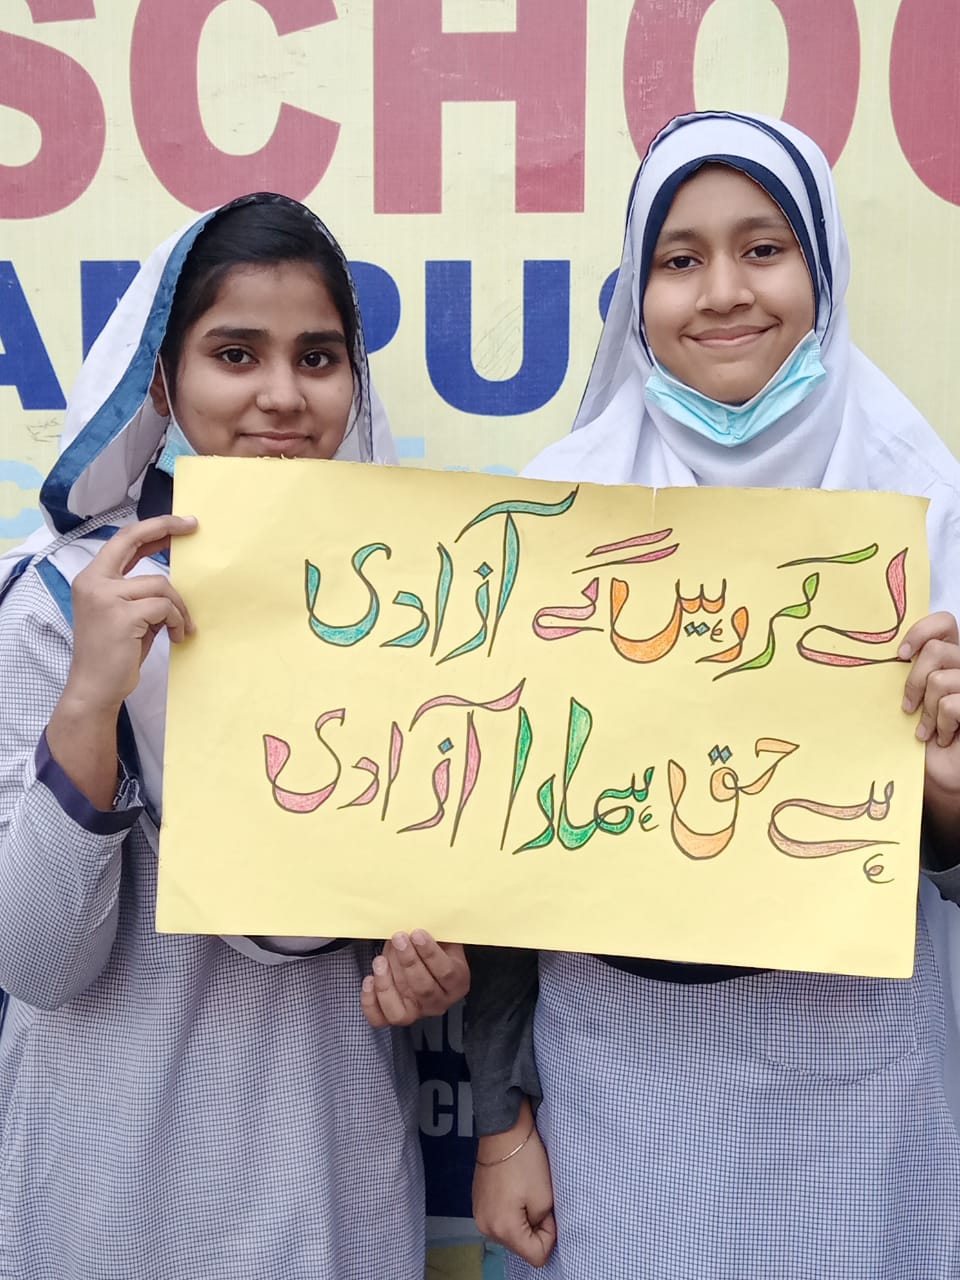 SCHOO
AMPUS
لے کر رہیں گے آزادی
ہے حق ہمارا آزادی